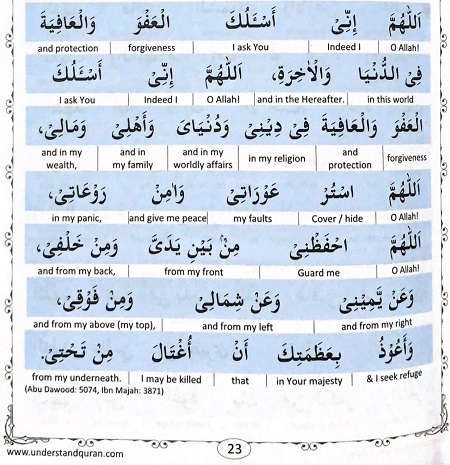 اَللّٰهُمَّ اِنِّىْ اَسْـَٔلُكَ الْعَفْوَ وَالْعَافِيَةَ
O Allah! Indeed I I ask You forgiveness and protection
فِى الدُّنْيَا وَالْاٰخِرَةِ، اَللّٰهُمَّ اِنِّىْ اَسْـَٔلُكَ
in this world and in the Hereafter. O Allah! Indeed I I ask You
الْعَفْوَ وَالْعَافِيَةَ فِىْ دِيْنِىْ وَدُنْيَاىَ وَأَهْلِىْ وَمَالِىْ،
forgiveness and protection in my religion and in my worldly affairs and in my family and in my wealth,
اَللّٰهُمَّ اسْتُرْ عَوْرَاتِىْ وَاٰمِنْ رَوْعَاتِىْ،
O Allah! Cover / hide my faults and give me peace in my panic,
اَللّٰهُمَّ احْفَظْنِىْ مِنْۢ بَيْنِ يَدَىَّ وَمِنْ خَلْفِىْ،
O Allah! Guard me from my front and from my back,
وَعَنْ يَّمِيْنِىْ وَعَنْ شِمَالِىْ وَمِنْ فَوْقِىْ،
and from my right and from my left and from my above (my top),
وَأَعُوْذُ بِعَظَمَتِكَ أَنْ أُغْتَالَ مِنْ تَحْتِىْ.
& I seek refuge in Your majesty that I may be killed from my underneath.
(Abu Dawood: 5074, Ibn Majah: 3871)
www.understandquran.com
23